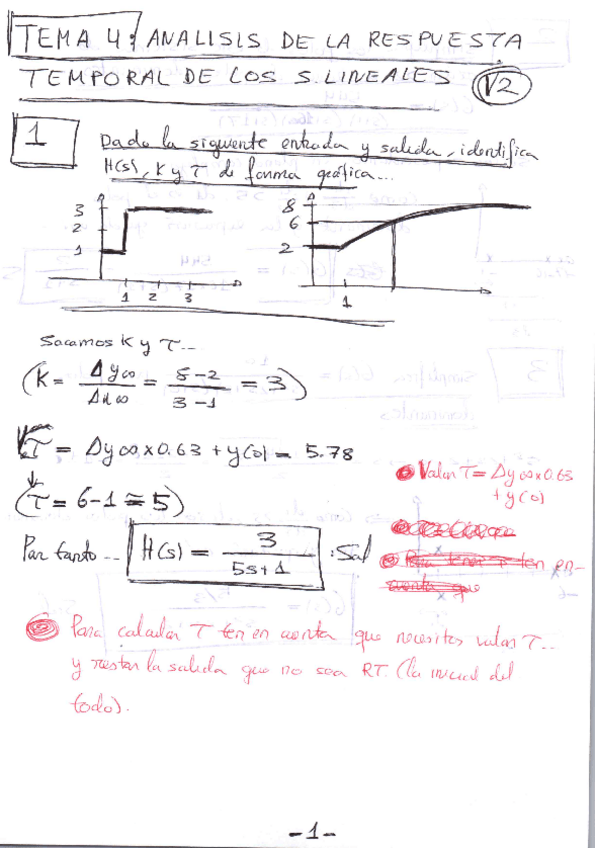 TEMA 4: ANALISIS DE LA RESPUESTA
TEMPORAL DE LOS S. LINEALES V2
1
Dado la siguiente entrada y salida, identifica
H(s), K y τ de forma gráfica...
3
2
1
1 2 3
8
6
2
1
Sacamos K y τ...
(K = Δy∞/Δu∞ = 8-2/3-1 = 3)
Vτ = Δy∞x0.63 + y(0) = 5.78
(τ = 6-1 ≅ 5)
Por tanto... H(s) = 3/5s+1 : Sol
Valor τ = Δy∞x0.63
+ y(0)
Para calcular τ ten en cuenta que necesitas valor τ...
y restar la salida que no sea RT. (la inicial del
todo).
-1-